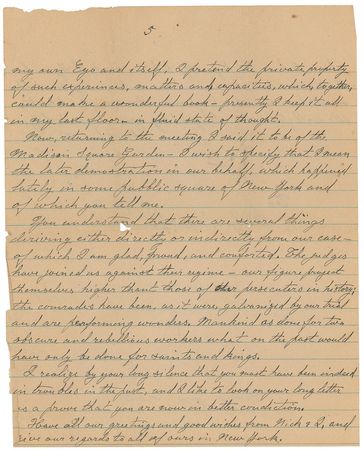 5
my own Ego and itself. I pretend the private property
of such experiences, matters and capacities, which together,
could make a wonderful book - presently I keep it all
in my last floor - in fluid state of thought.
Now, returning to the meeting I said it to be of the
Madison Square Garden - I wish to specify that I mean
the later demostration in our behalf, which happened
lately in some pubblic square of New York and
of which you tell me.
You understand that there are several things
deriving either directly or indirectly from our case -
of which I am glad, proud, and conforted. The judges
have joined us against their regime - our figure project
themselves higher than those of our persecuters in history;
the comrades have been, as it were, galvanized by our trial
and are performing wonders. Mankind as done for two
obscure and rebellious workers what on the past would
have only be done for saints and kings.
I realize by your long silence that you must have been indeed
in troubles in the past, and I like to look on your long letter
as a prove that you are now in better condiction.
Have all our greetings and good wishes from Nick & I, and
give our regards to all of ours in New York.